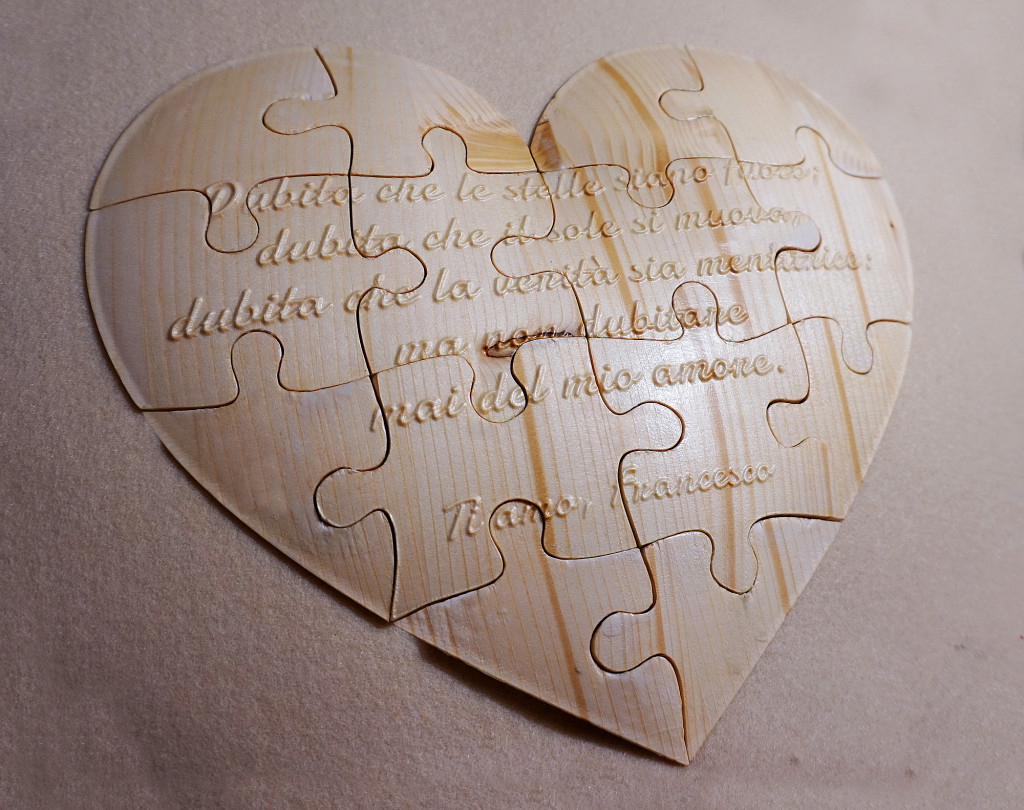 Dubita che le stelle siano fuoco;
dubita che il sole si muova,
dubita che la verità sia mentitrice:
ma non dubitare
mai del mio amore.
Ti amo, Francesco